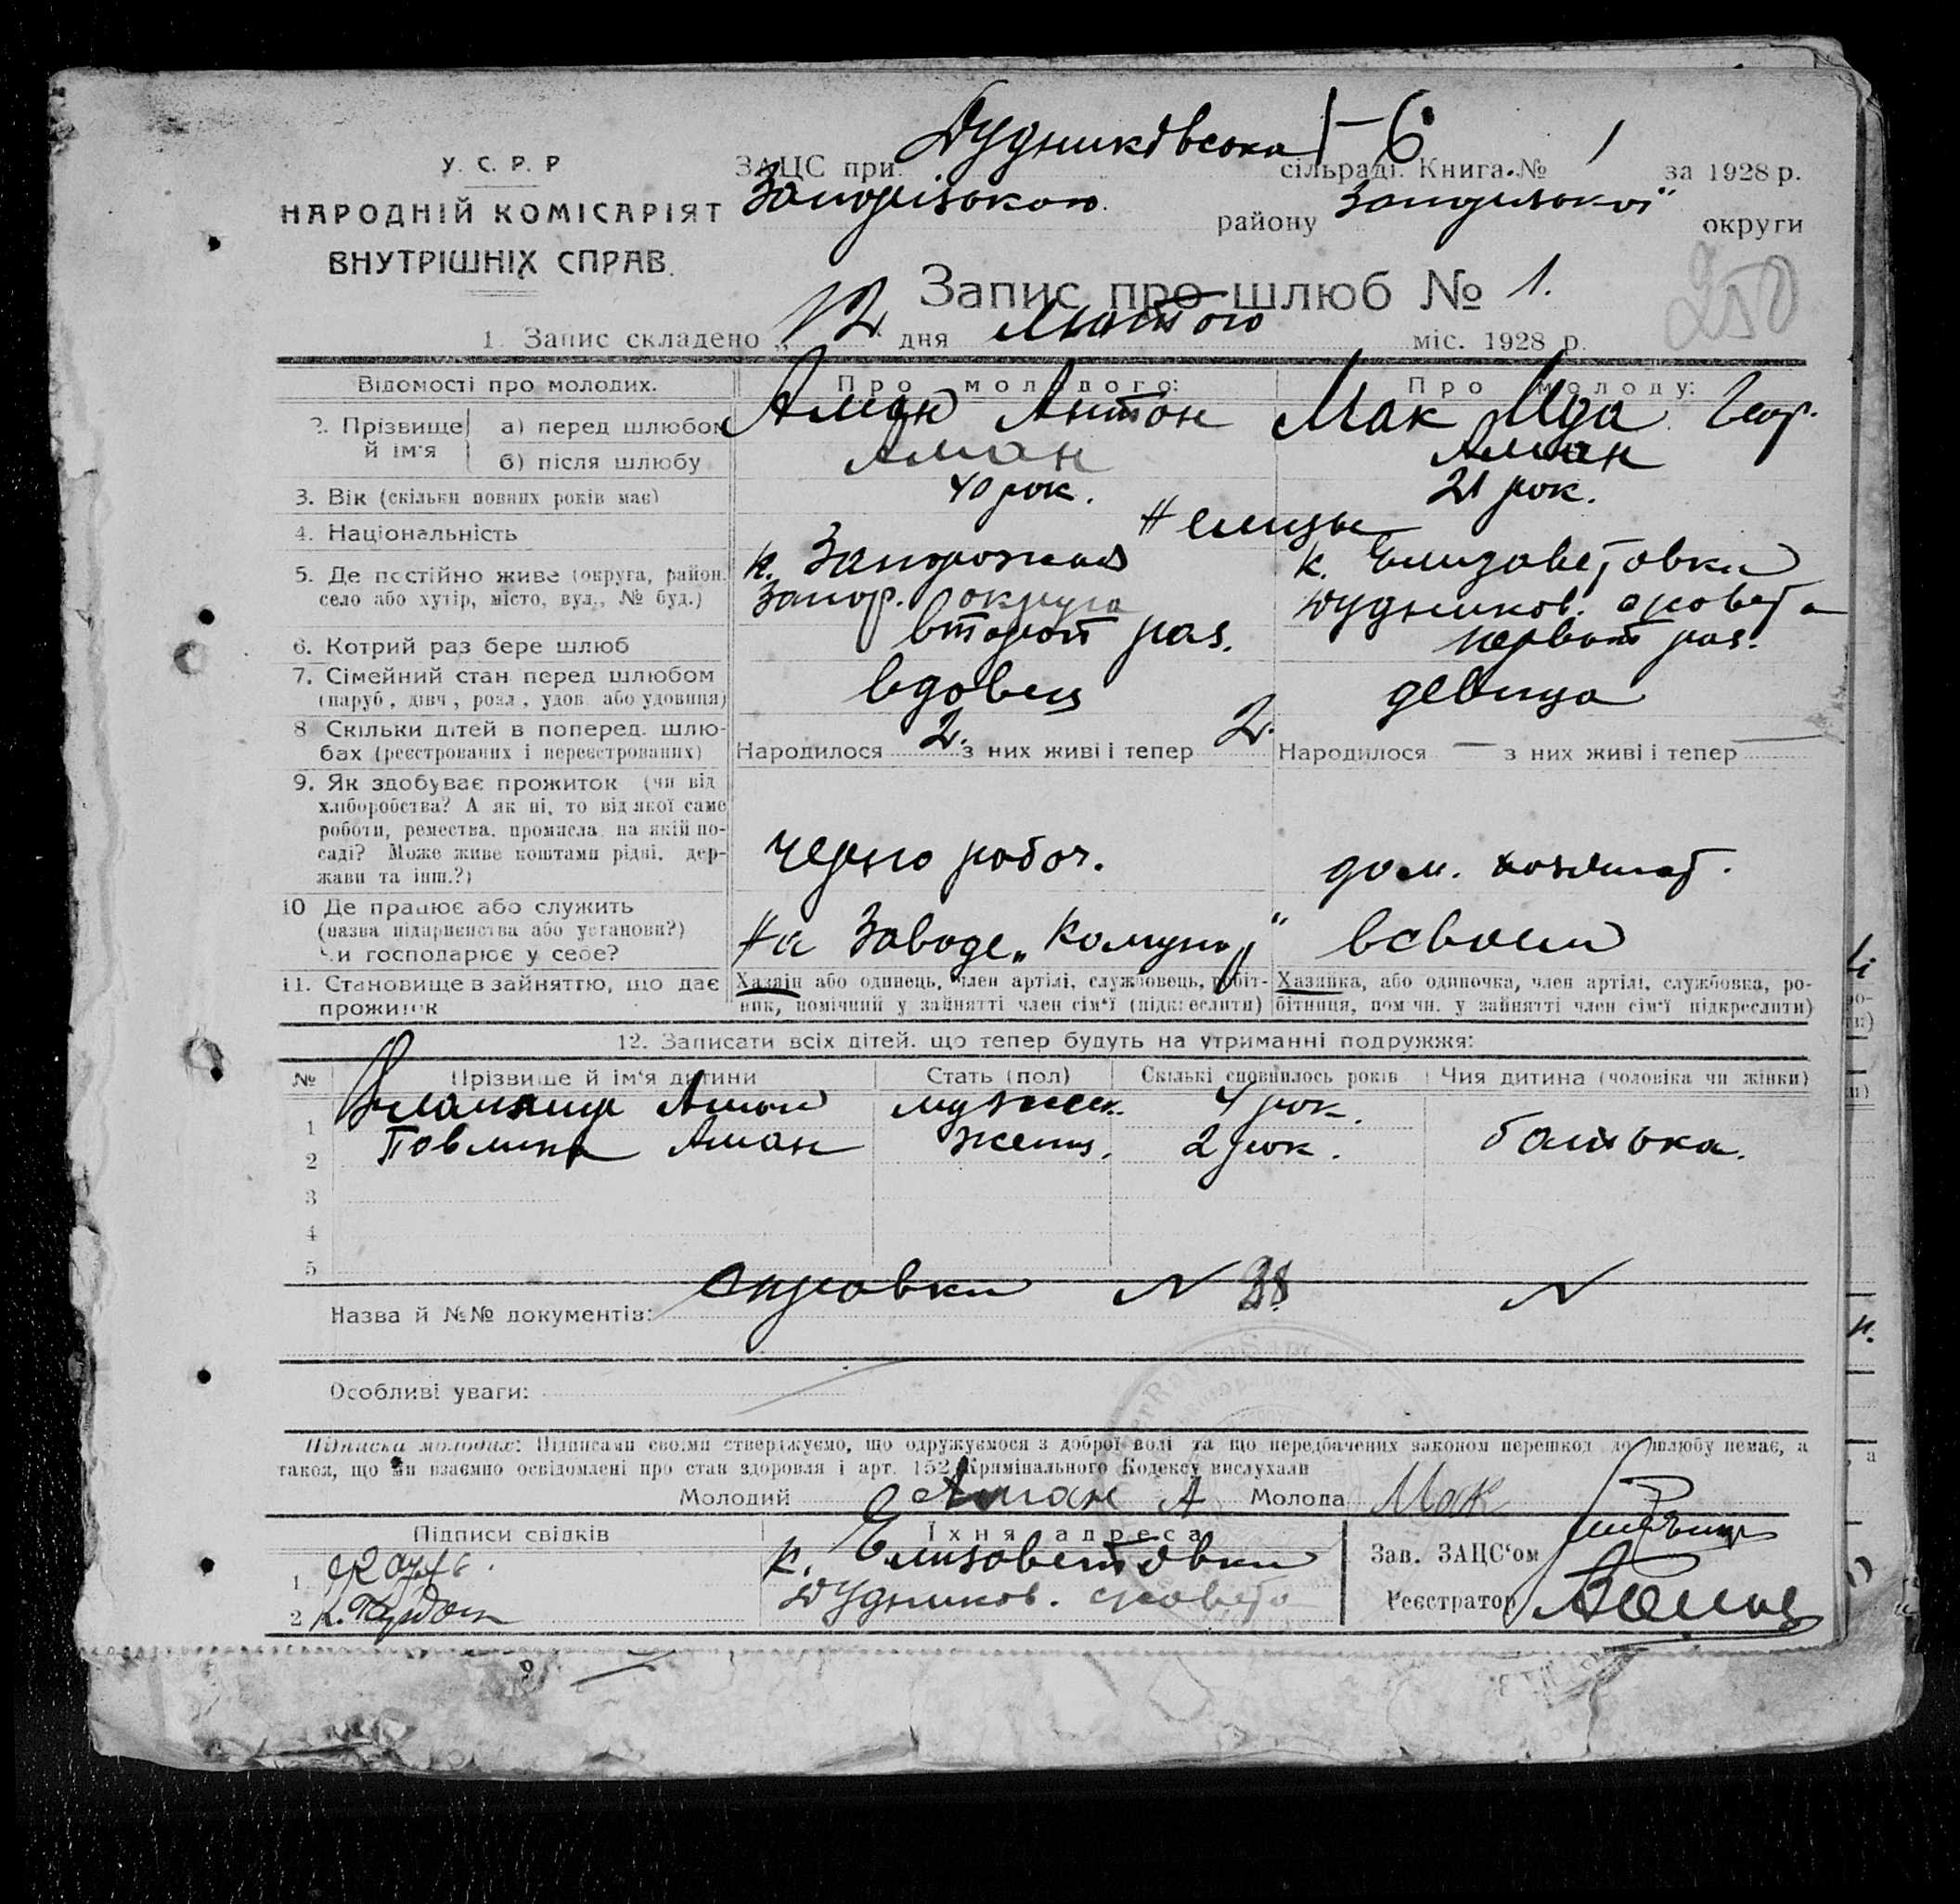 Дудниківська 1-6
У. С. Р. Р
ЗАЦС при сільраді. Книга № 1 за 1928 р.
НАРОДНІЙ КОМІСАРІЯТ
ВНУТРІШНІХ СПРАВ.
району округи
Запис про шлюб № 1.
250
1. Запис складено „12 дня Лютого міс. 1928 р.
Відомості про молодих. Про молодого: Про молоду:
2. Прізвище й ім'я а) перед шлюбом Аман Антон Мак Ида Геор.
б) після шлюбу Аман Аман
3. Вік (скільки повних років має) 40 рок. 21 рок.
4. Національність Немцы
5. Де постійно живе (округа, район, к. Запорожья к. Елизаветовки
село або хутір, місто, вул., № буд.) Запор. округа Дудников. сровета
6. Котрий раз бере шлюб второй раз. первый раз.
7. Сімейний стан перед шлюбом вдовец девица
(паруб, дівч, розл, удов. або удовиця)
8 Скільки дітей в поперед. шлю-
бах (реєстрованих і переєстрованих) Народилося 2. з них живі і тепер 2. Народилося — з них живі і тепер —
9. Як здобуває прожиток (чи від
хліборобства? А як ні, то від якої саме
роботи, ремества, промисла, на якій по-
саді? Може живе коштами рідні, дер- черно рабоч. дом. хозяйст.
жави та інш.?)
10 Де працює або служить
(назва підприємства або установи?) На Заводе „Комунар“
Чи господарює у себе?
11. Становище в зайняттю, що дає Хазяїн або одинець, член артілі, службовець, робіт- Хазяйка, або одиночка, член артілі, службовка, ро-
прожиток ник, помічний у зайнятті член сім'ї (підкреслити) бітниця, пом чн. у зайнятті член сім'ї підкреслити)
12. Записати всіх дітей, що тепер будуть на утриманні подружжя:
№ Прізвище й ім'я дитини Стать (пол) Скількі сповнилось років Чия дитина (чоловіка чи жінки)
1 Аман мужск. 4 рок.
2 Павлина Аман женщ. 2 рок. батька.
3
4
5
Назва й №№ документів: Справки N 38 N
Особливі уваги:
Підписка молодих: Підписами своїми стверджуємо, що одружуємося з доброї волі та що передбачених законом перешкод до шлюбу немає, а
також, що ми взаємно освідомлені про стан здоровля і арт. 152 Крямінального Кодексу вислухали
Молодий Аман А Молода Мак
Підписи свідків Їхня адреса
Зав. ЗАЦС'ом
1. к. Елизаветовки
2 Дудников. сровета Реєстратор